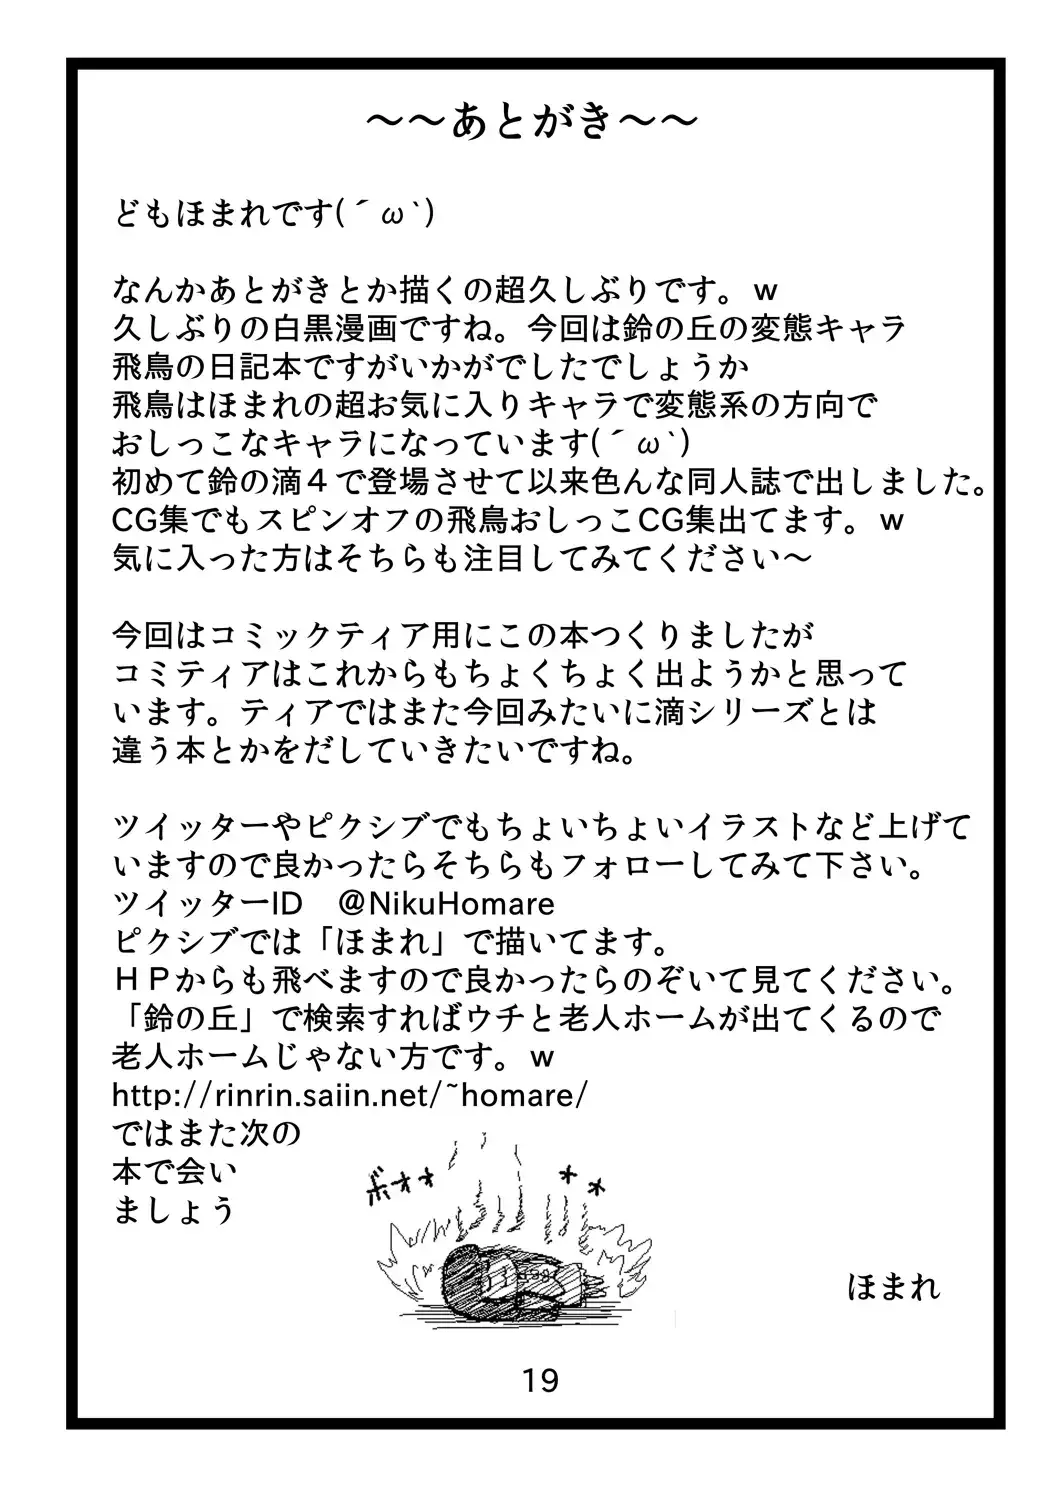 ～～あとがき～～
どもほまれです(´ω`)
なんかあとがきとか描くの超久しぶりです。ｗ
久しぶりの白黒漫画ですね。今回は鈴の丘の変態キャラ
飛鳥の日記本ですがいかがでしたでしょうか
飛鳥はほまれの超お気に入りキャラで変態系の方向で
おしっこなキャラになっています(´ω`)
初めて鈴の滴４で登場させて以来色んな同人誌で出しました。
CG集でもスピンオフの飛鳥おしっこCG集出てます。ｗ
気に入った方はそちらも注目してみてください～
今回はコミックティア用にこの本つくりましたが
コミティアはこれからもちょくちょく出ようかと思って
います。ティアではまた今回みたいに滴シリーズとは
違う本とかをだしていきたいですね。
ツイッターやピクシブでもちょいちょいイラストなど上げて
いますので良かったらそちらもフォローしてみて下さい。
ツイッターID　@NikuHomare
ピクシブでは「ほまれ」で描いてます。
ＨＰからも飛べますので良かったらのぞいて見てください。
「鈴の丘」で検索すればウチと老人ホームが出てくるので
老人ホームじゃない方です。ｗ
http://rinrin.saiin.net/~homare/
ではまた次の
本で会い
ましょう
ボォォ
ほまれ
19